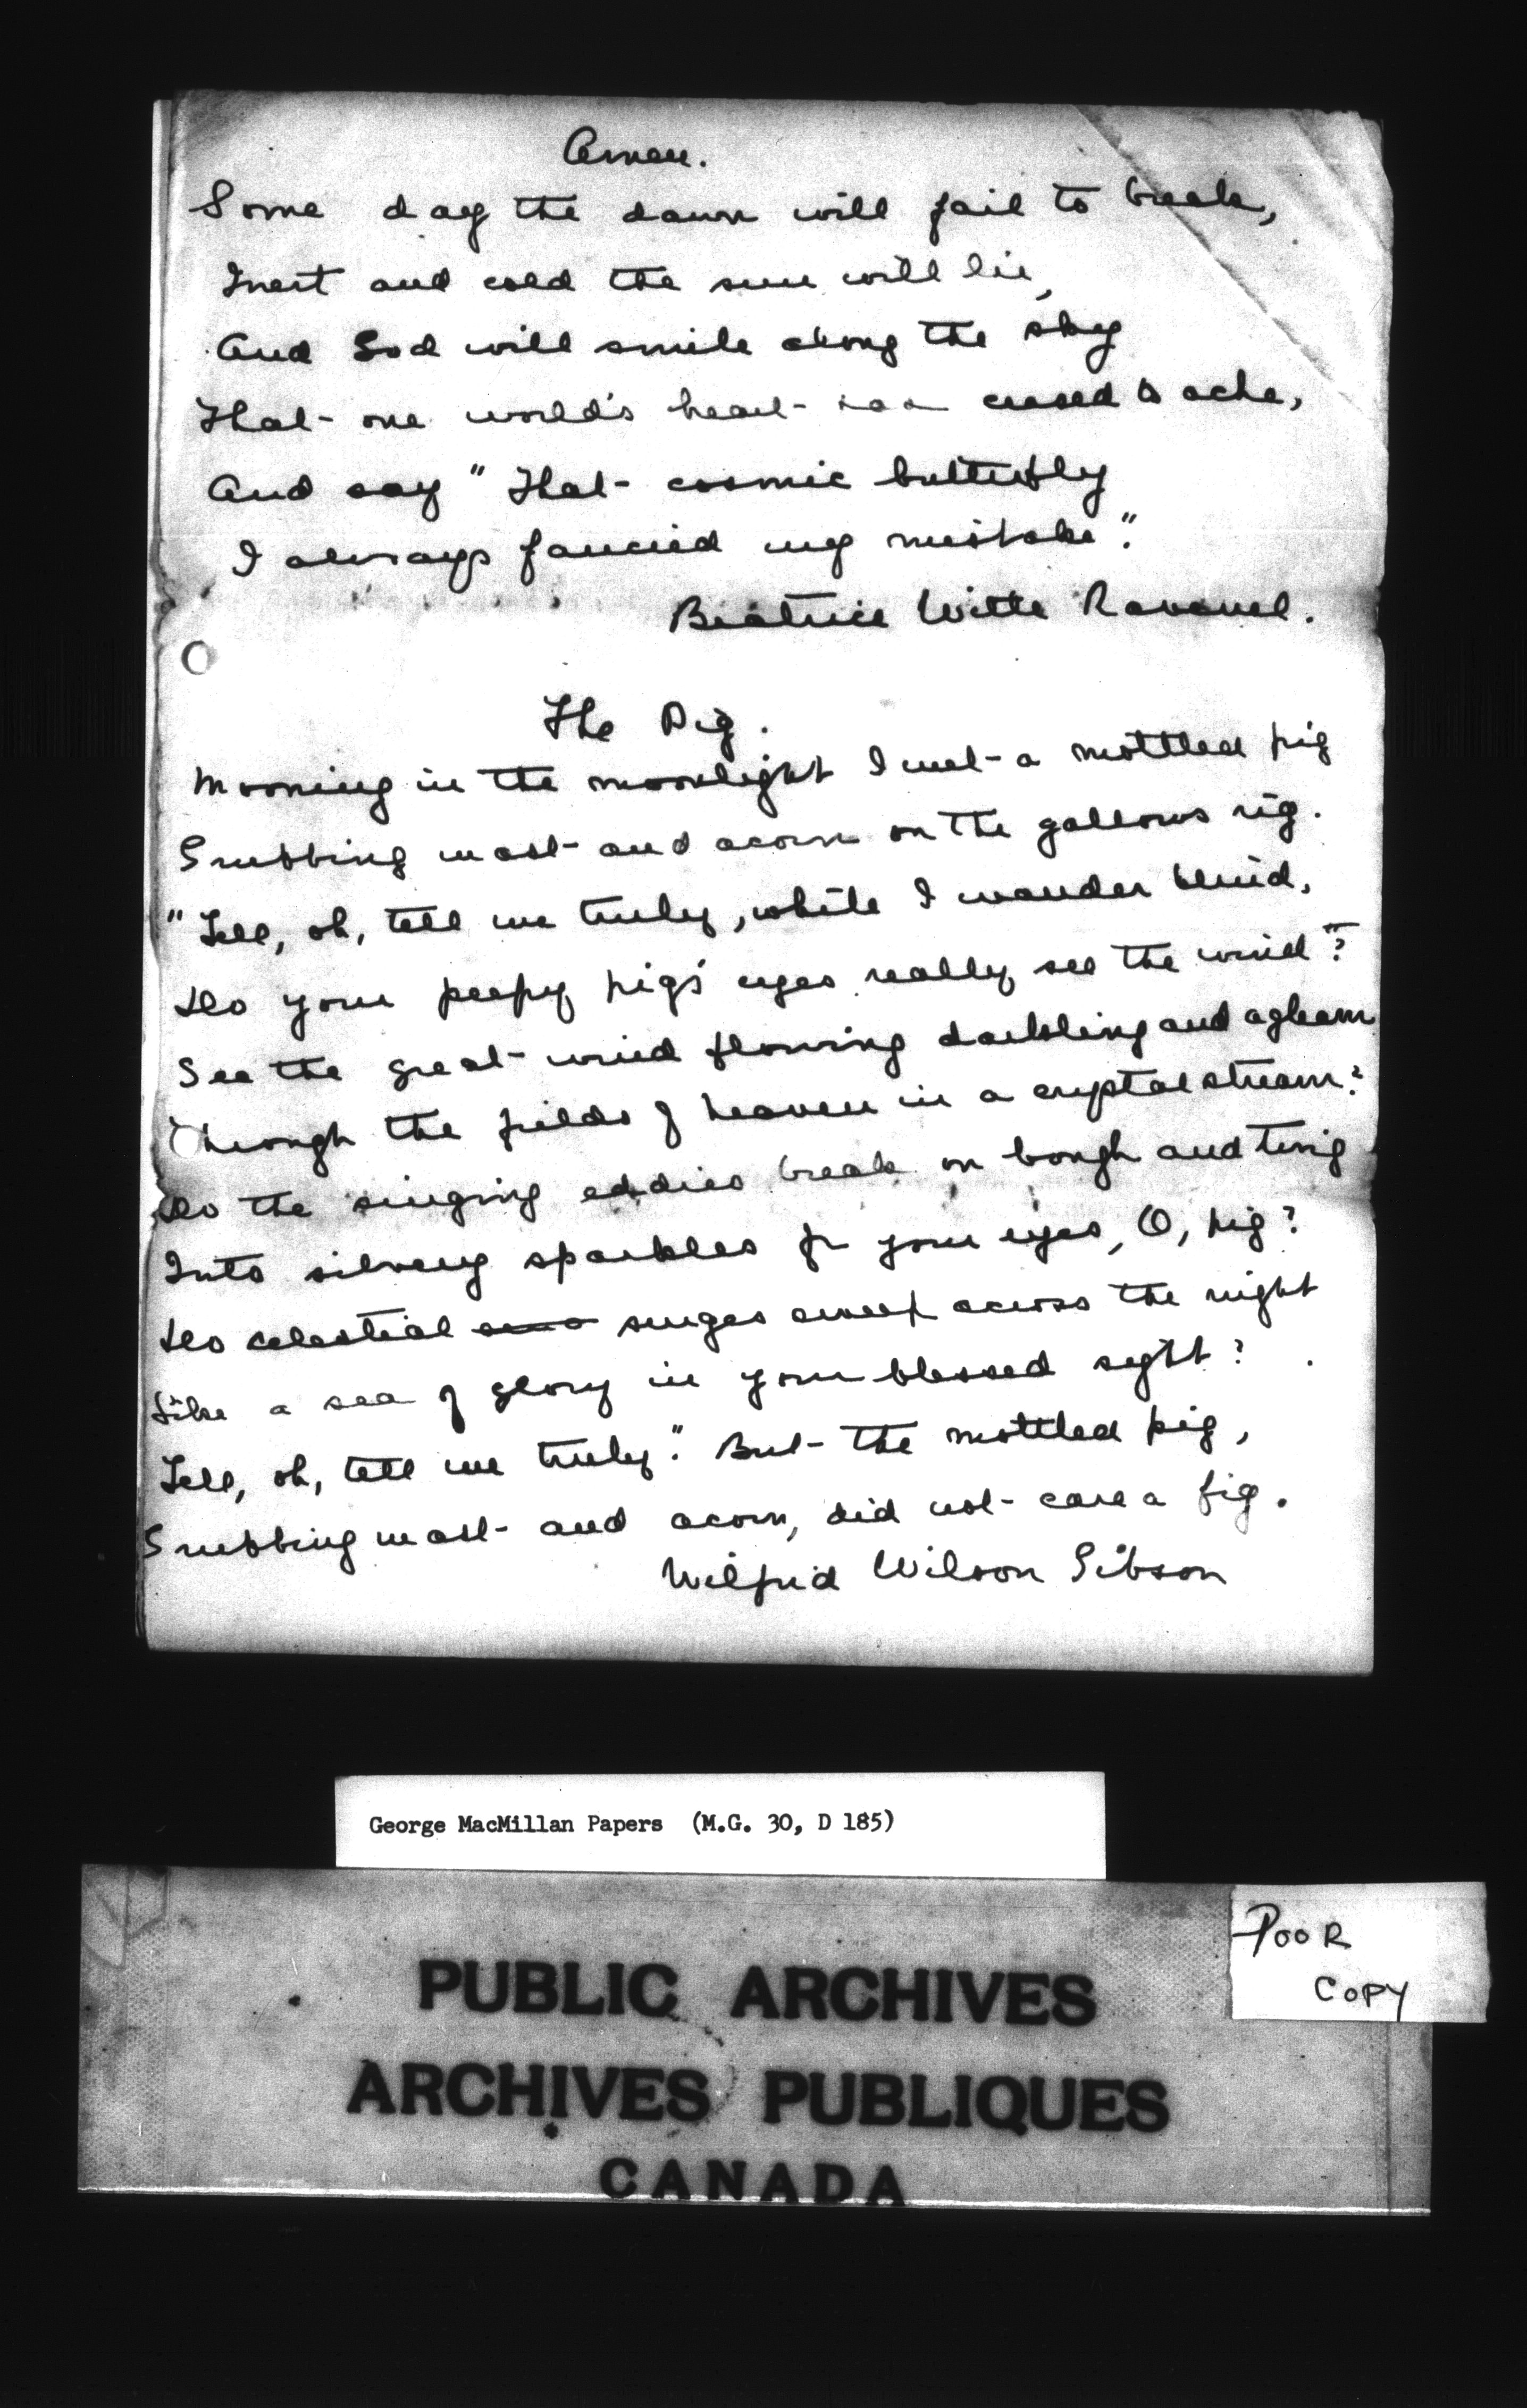 Amen.
Some day the dawn will fail to break,
Inert and cold the sun will lie,
And God will smile along the sky
That one world's heart has ceased to ache,
And say "That cosmic butterfly
I always fancied my mistake".
Beatrice Witte Ravenel.
The Pig.
Mooning in the moonlight I met a mottled pig
Grubbing mast and acorn on the gallows rig.
"Tell, oh, tell me truly, while I wander blind,
Do your peepy pigs' eyes really see the wind?
See the great wind flowing darkling and agleam
Through the fields of heaven in a crystal stream?
Do the singing eddies break on bough and twig
Into silvery sparkles for your eyes, O, pig?
Do celestial surges sweep across the night
Like a sea of glory in your blessed sight?
Tell, oh, tell me truly". But the mottled pig,
Grubbing mast and acorn, did not care a fig.
Wilfrid Wilson Gibson
George MacMillan Papers (M.G. 30, D 185)
POOR
COPY
PUBLIC ARCHIVES
ARCHIVES PUBLIQUES
CANADA